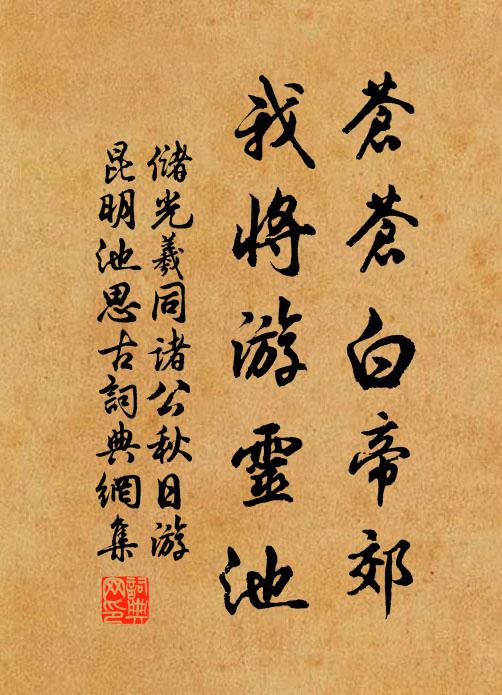 蒼蒼白帝郊
我將游靈池
儲光羲同諸公秋日游
昆明池思古詞典網集
詞典
網印